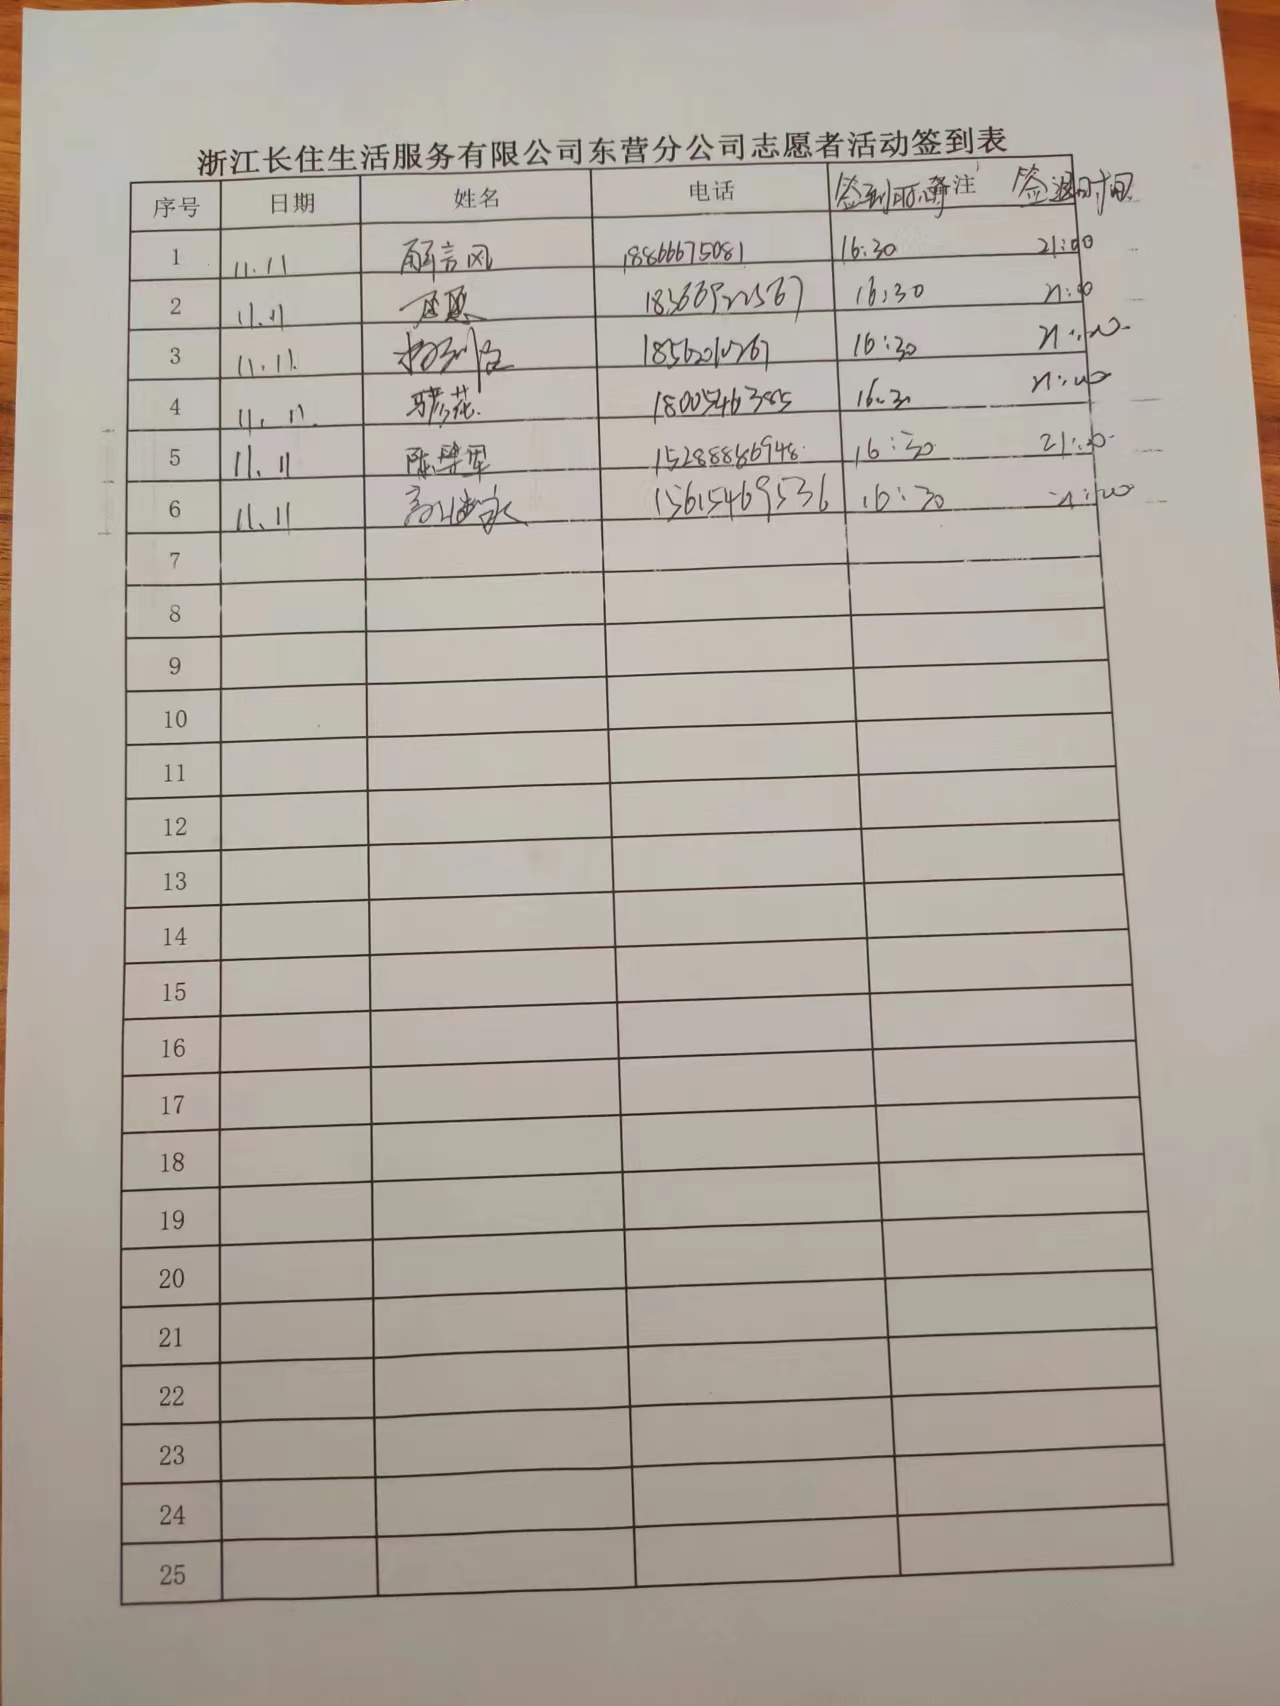 浙江长住生活服务有限公司东营分公司志愿者活动签到表
序号 日期 姓名 电话 签到时间 备注 签退时间
1 11.11 解言风 18866675081 16:30 21:00
2 11.11 16:30 21:00
3 11.11 16:30 21:00
4 11.11 18005463985 16:30 21:00
5 11.11 15288886948 16:30 21:00
6 11.11 15615469536 16:30 21:00
7
8
9
10
11
12
13
14
15
16
17
18
19
20
21
22
23
24
25